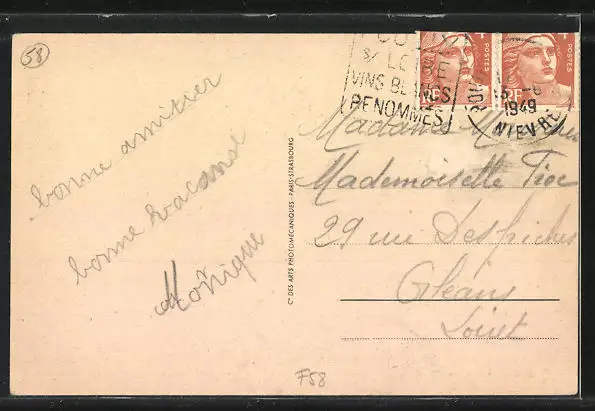 58
bonne amitier
bonne vacance
Monique
Cie DES ARTS PHOTOMÉCANIQUES - PARIS-STRASBOURG
S/ LOIRE
VINS BLANCS
RENOMMÉS
POSTES
RF
POSTES
RF
1949
NIEVRE
Madame
Mademoiselle
29 rue Desfriches
Orleans
Loiret
F58